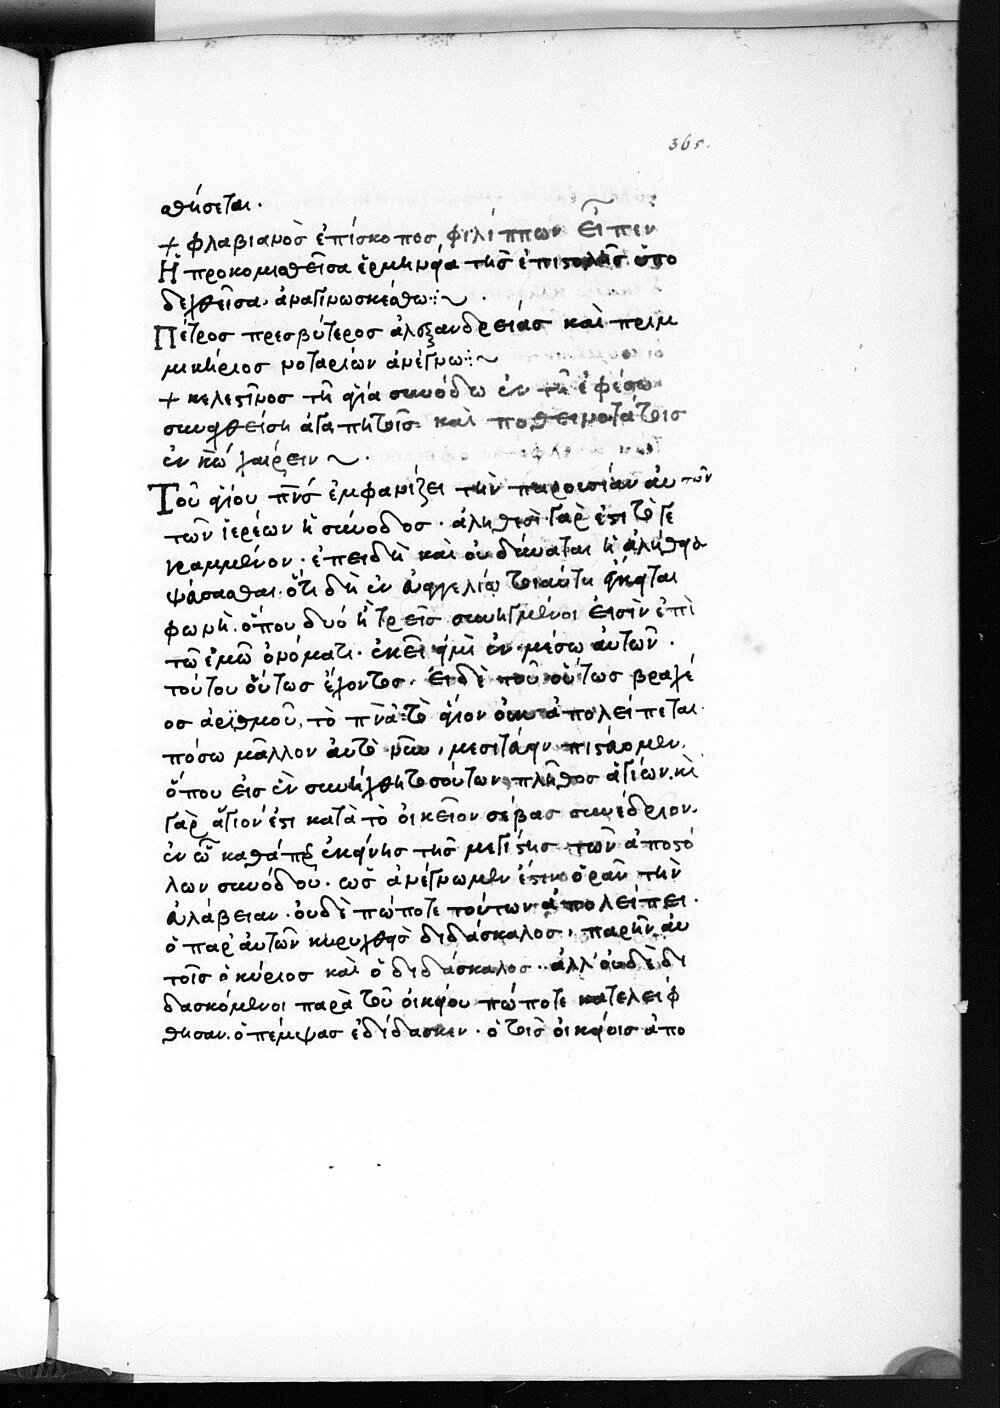 365.
αθήσεται.
+ φλαβιανὸσ ἐπίσκοποσ φιλίππων εἶπεν
Ἡ προκομισθεῖσα ἑρμηνεία τῆσ ἐπιστολῆσ ὑπο
δεχθεῖσα. ἀναγινωσκέσθω:~ .
Πέτροσ πρεσβύτεροσ ἀλεξανδρείάσ καὶ πριμ
μικήριοσ νοταρίων ἀνέγνω:~
+ κελεστῖνοσ τῆ ἁγία συνόδω ἐν τῆ ἐφέσω
συναχθείση ἀγαπητοῖσ καὶ ποθεινοτάτοισ
ἐν κ̅ω̅ χαίρειν ~ .
Τοῦ ἁγίου π̅ν̅σ̅ ἐμφανίζει τὴν παρουσίαν αὐτῶν
τῶν ἱερέων ἡ σύνοδοσ. ἀληθὲσ γὰρ ἐστι τὸ γε
γραμμένον. ἐπειδὴ καὶ οὐ δύναται ἡ ἀλήθεια
ψεύσασθαι. ὅτι δὴ ἐν εὐαγγελίω τοιαύτη κεῖται
φωνὴ. ὅπου δυό ἢ τρεῖσ συνηγμένοι εἰσὶν ἐπὶ
τῶ ἐμῶ ὀνόματι. ἐκεῖ εἰμὶ ἐν μέσω αὐτῶν .
τούτου οὕτωσ ἔχοντοσ. εἰ δὲ ποῦ οὕτωσ βραχέ
οσ ἀριθμοῦ, τὸ π̅ν̅α̅ τὸ ἅγιον οὐκ ἀπολείπεται.
πόσω μᾶλλον αὐτὸ νῦν, μεσιτεύειν πιστεύομεν.
ὅπου εισ ἓν συνήχθη τοσούτων πλῆθοσ ἁγίων. κὶ
γὰρ ἅγιον ἐστι κατὰ τὸ οἰκεῖον σέβασ συνέδριον.
ἐν ὧ καθάπερ ἐκείνησ τῆσ μεγίστησ τῶν ἀποστό
λων συνόδου. ωσ ἀνέγνωμεν ἔστιν ὁρᾶν τὴν
εὐλάβειαν. οὐδὲ πώποτε τούτων ἀπολείπει.
ὁ παρ' αὐτῶν κηρυχθεὶσ διδάσκαλοσ. παρῆν αὐ
τοῖσ ὁ κύριοσ καὶ ὁ διδάσκαλοσ. ἀλλ' οὐδὲ δι
δασκόμενοι παρὰ τοῦ οἰκείου πώποτε κατελείφ
θησαν. ὁ πέμψασ ἐδίδασκεν. ὁ τοῖσ οἰκείοισ ἀπο